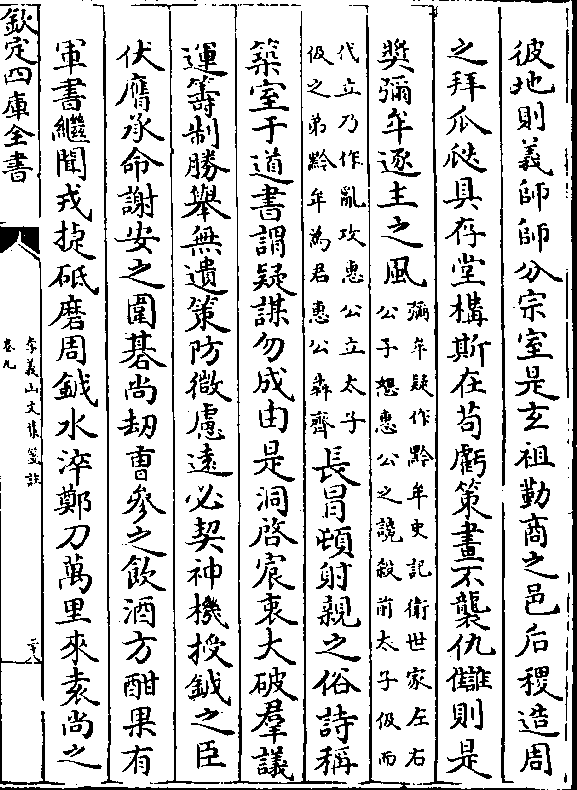 彼地則義師師分宗室是玄祖勤商之邑后稷造周
之拜瓜瓞具存堂構斯在苟虧策畫不襲仇讎則是
奬彌牟逐主之風彌牟疑作黔牟史記衛世家左右公子恕惠公之讒殺前太子伋而
代立乃作亂攻惠公立太子伋之弟黔牟為君惠公犇齊長冒頓射親之俗詩稱
築室于道書謂疑謀勿成由是洞啓宸衷大破羣議
運籌制勝舉無遺策防微慮遠必契神機授鉞之臣
伏膺承命謝安之圍碁尚劫曹參之飲酒方酣果有
軍書繼聞戎捷砥磨周鉞水淬鄭刀萬里來袁尚之
欽定四庫全書
李義山文集箋註
卷九
二十八